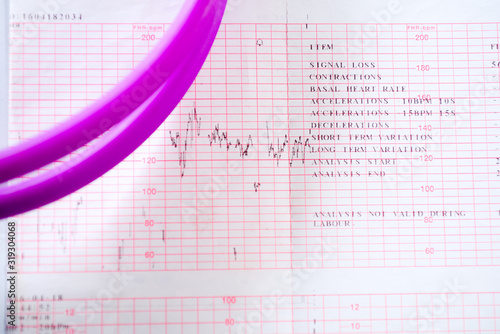 :1604182034
FHR-bpm
FHR-bpm
200
180
160
140
120
120
100
100
80
80
60
60
ITEM
SIGNAL LOSS
CONTRACTIONS
BASAL HEART RATE
ACCELERATIONS 10BPM 10S
ACCELERATIONS 15BPM 15S
DECELERATIONS
SHORT TERM VARIATION
LONG TERM VARIATION
ANALYSIS START
ANALYSIS END
ANALYSIS NOT VALID DURING
LABOUR.
100
100
80
Adobe Stock | #319304068